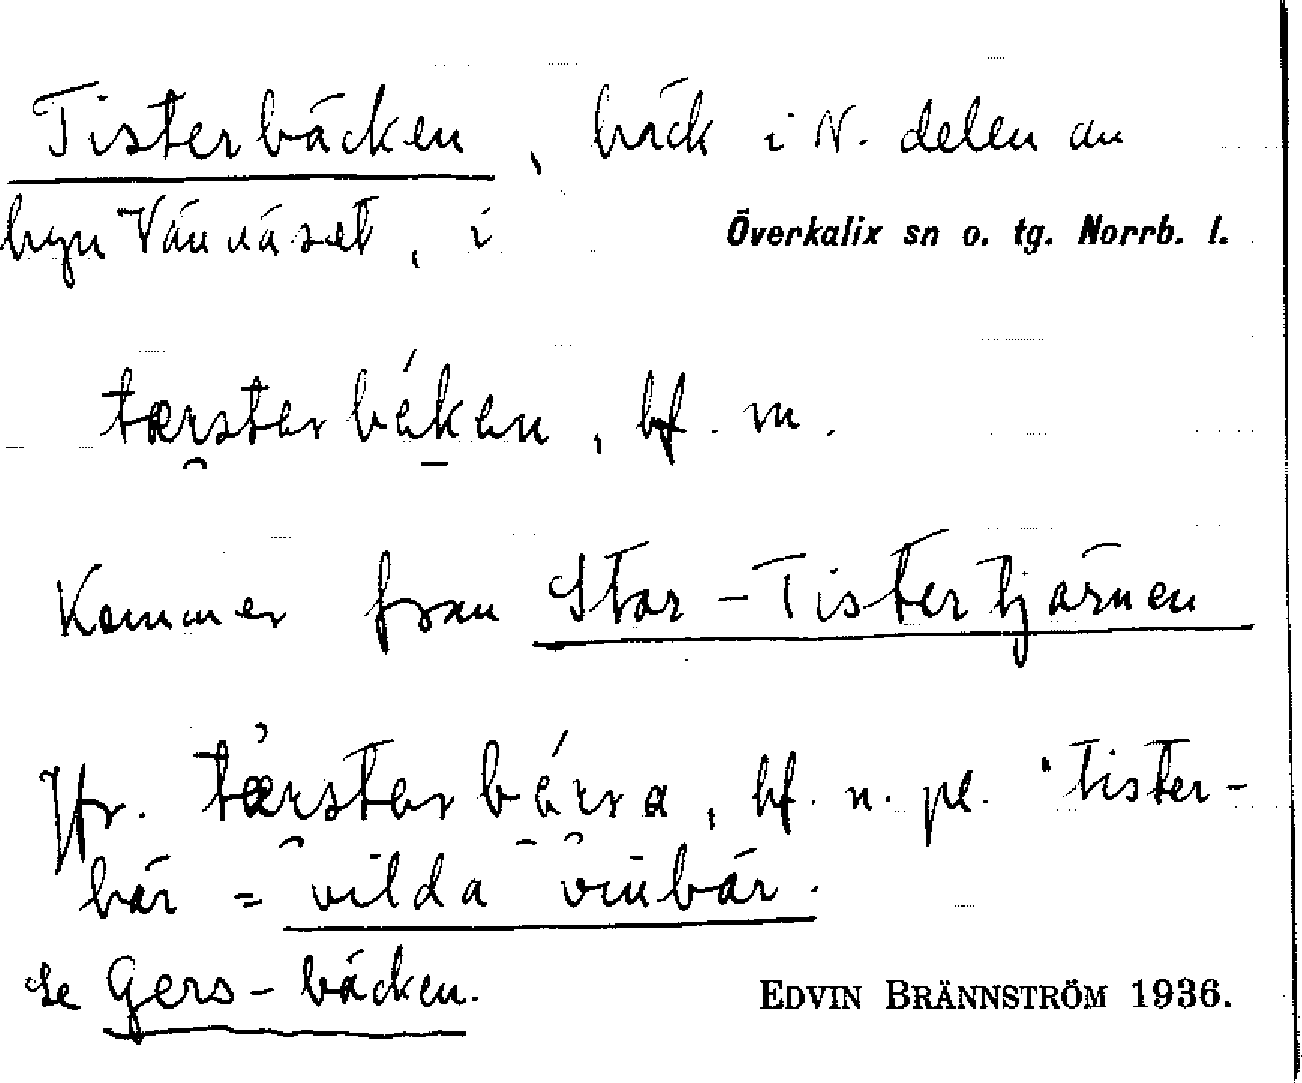 Tisterbäcken, bäck i N. delen av
byn Vännäset, i Överkalix sn o. tg. Norrb. l.
tærsterbéken, bf. m.
Kommer från Stor-Tistertjärnen
Jfr. tærsterbérra, bf. n. pl. "tister-
bär = vilda vinbär.
Se Gers-bäcken. EDVIN BRÄNNSTRÖM 1936.